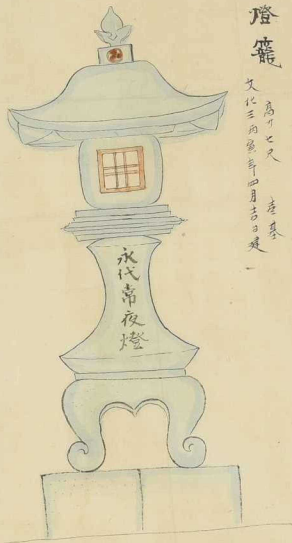 燈籠
高サ七尺 壱基
文化三丙寅年四月吉日建
永代常夜燈